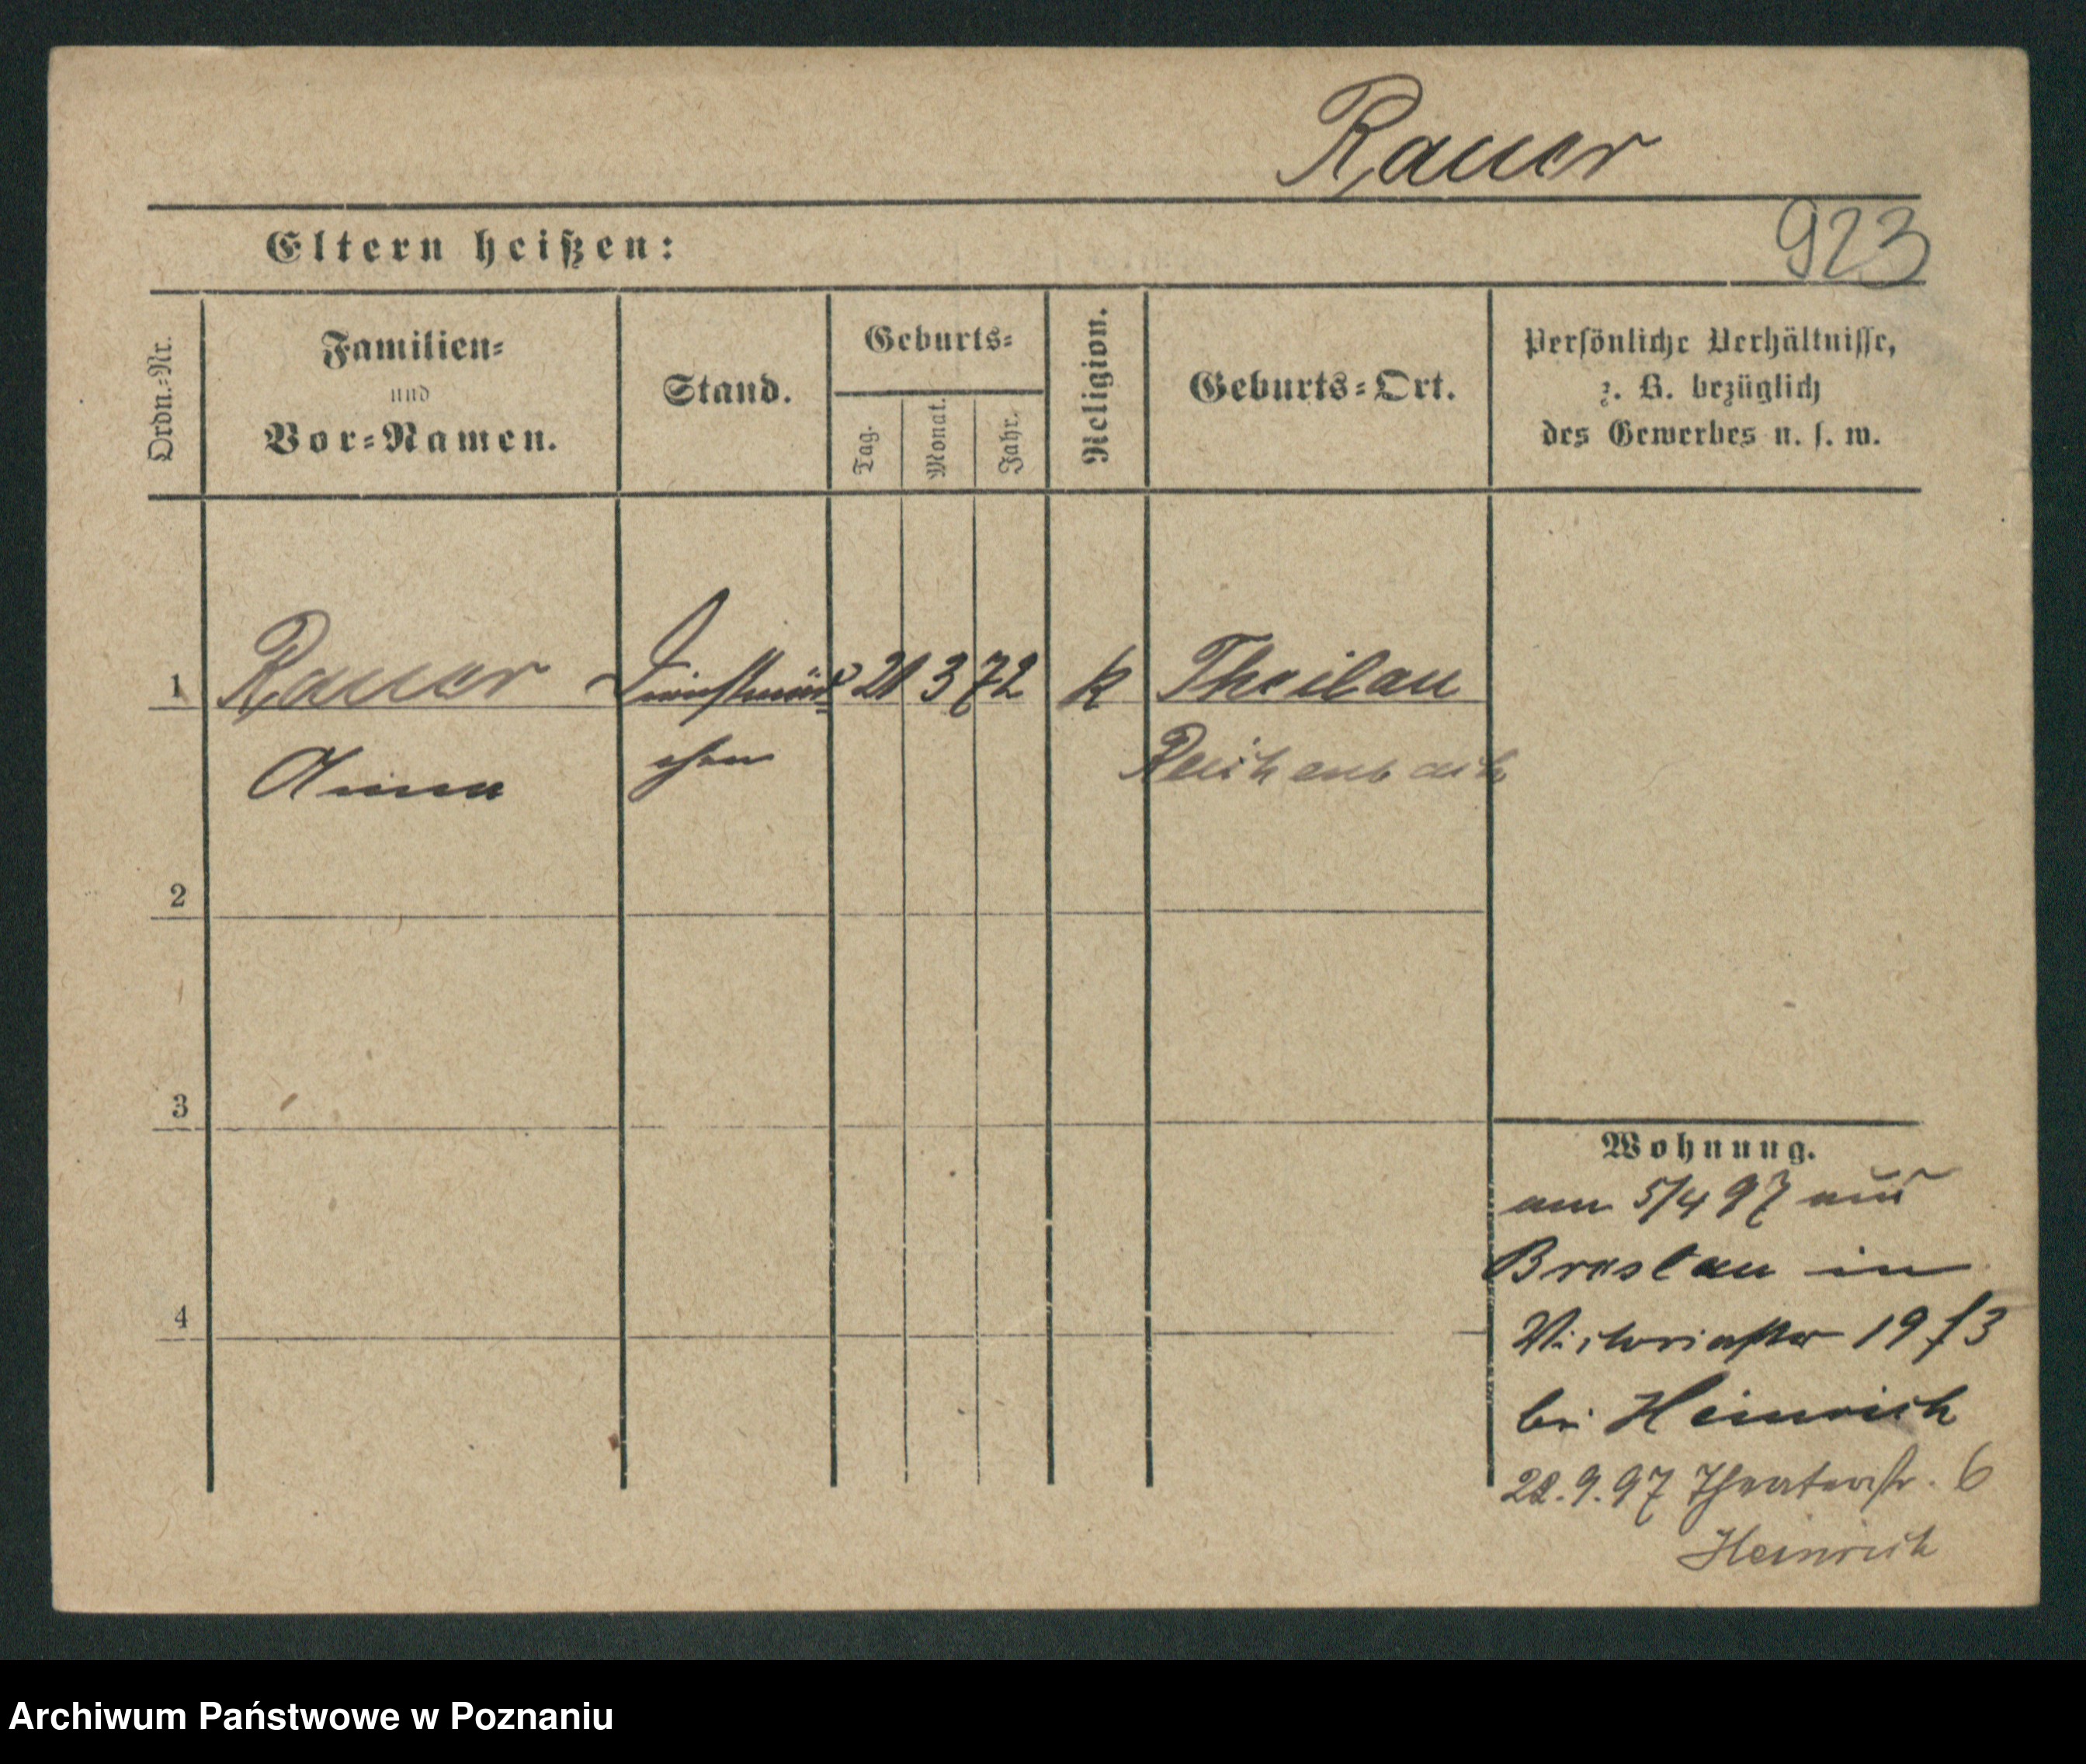 Rauer
923
Eltern heißen:
Ordn.=Nr.
Familien=
und
Vor=Namen.
Stand.
Geburts=
Tag.
Monat.
Jahr.
Religion.
Geburts=Ort.
Persönliche Verhältnisse,
z. B. bezüglich
des Gewerbes u. s. w.
1 Rauer Dienstmäd= 21 3 72 k Theilau
Anna chen Reichenbach
2
3
4
Wohnung.
am 5/4 97 aus
Breslau in
Victoriastr 19
bei Heinrich
22.9.97 Theaterstr. 6
Heinrich
Archiwum Państwowe w Poznaniu